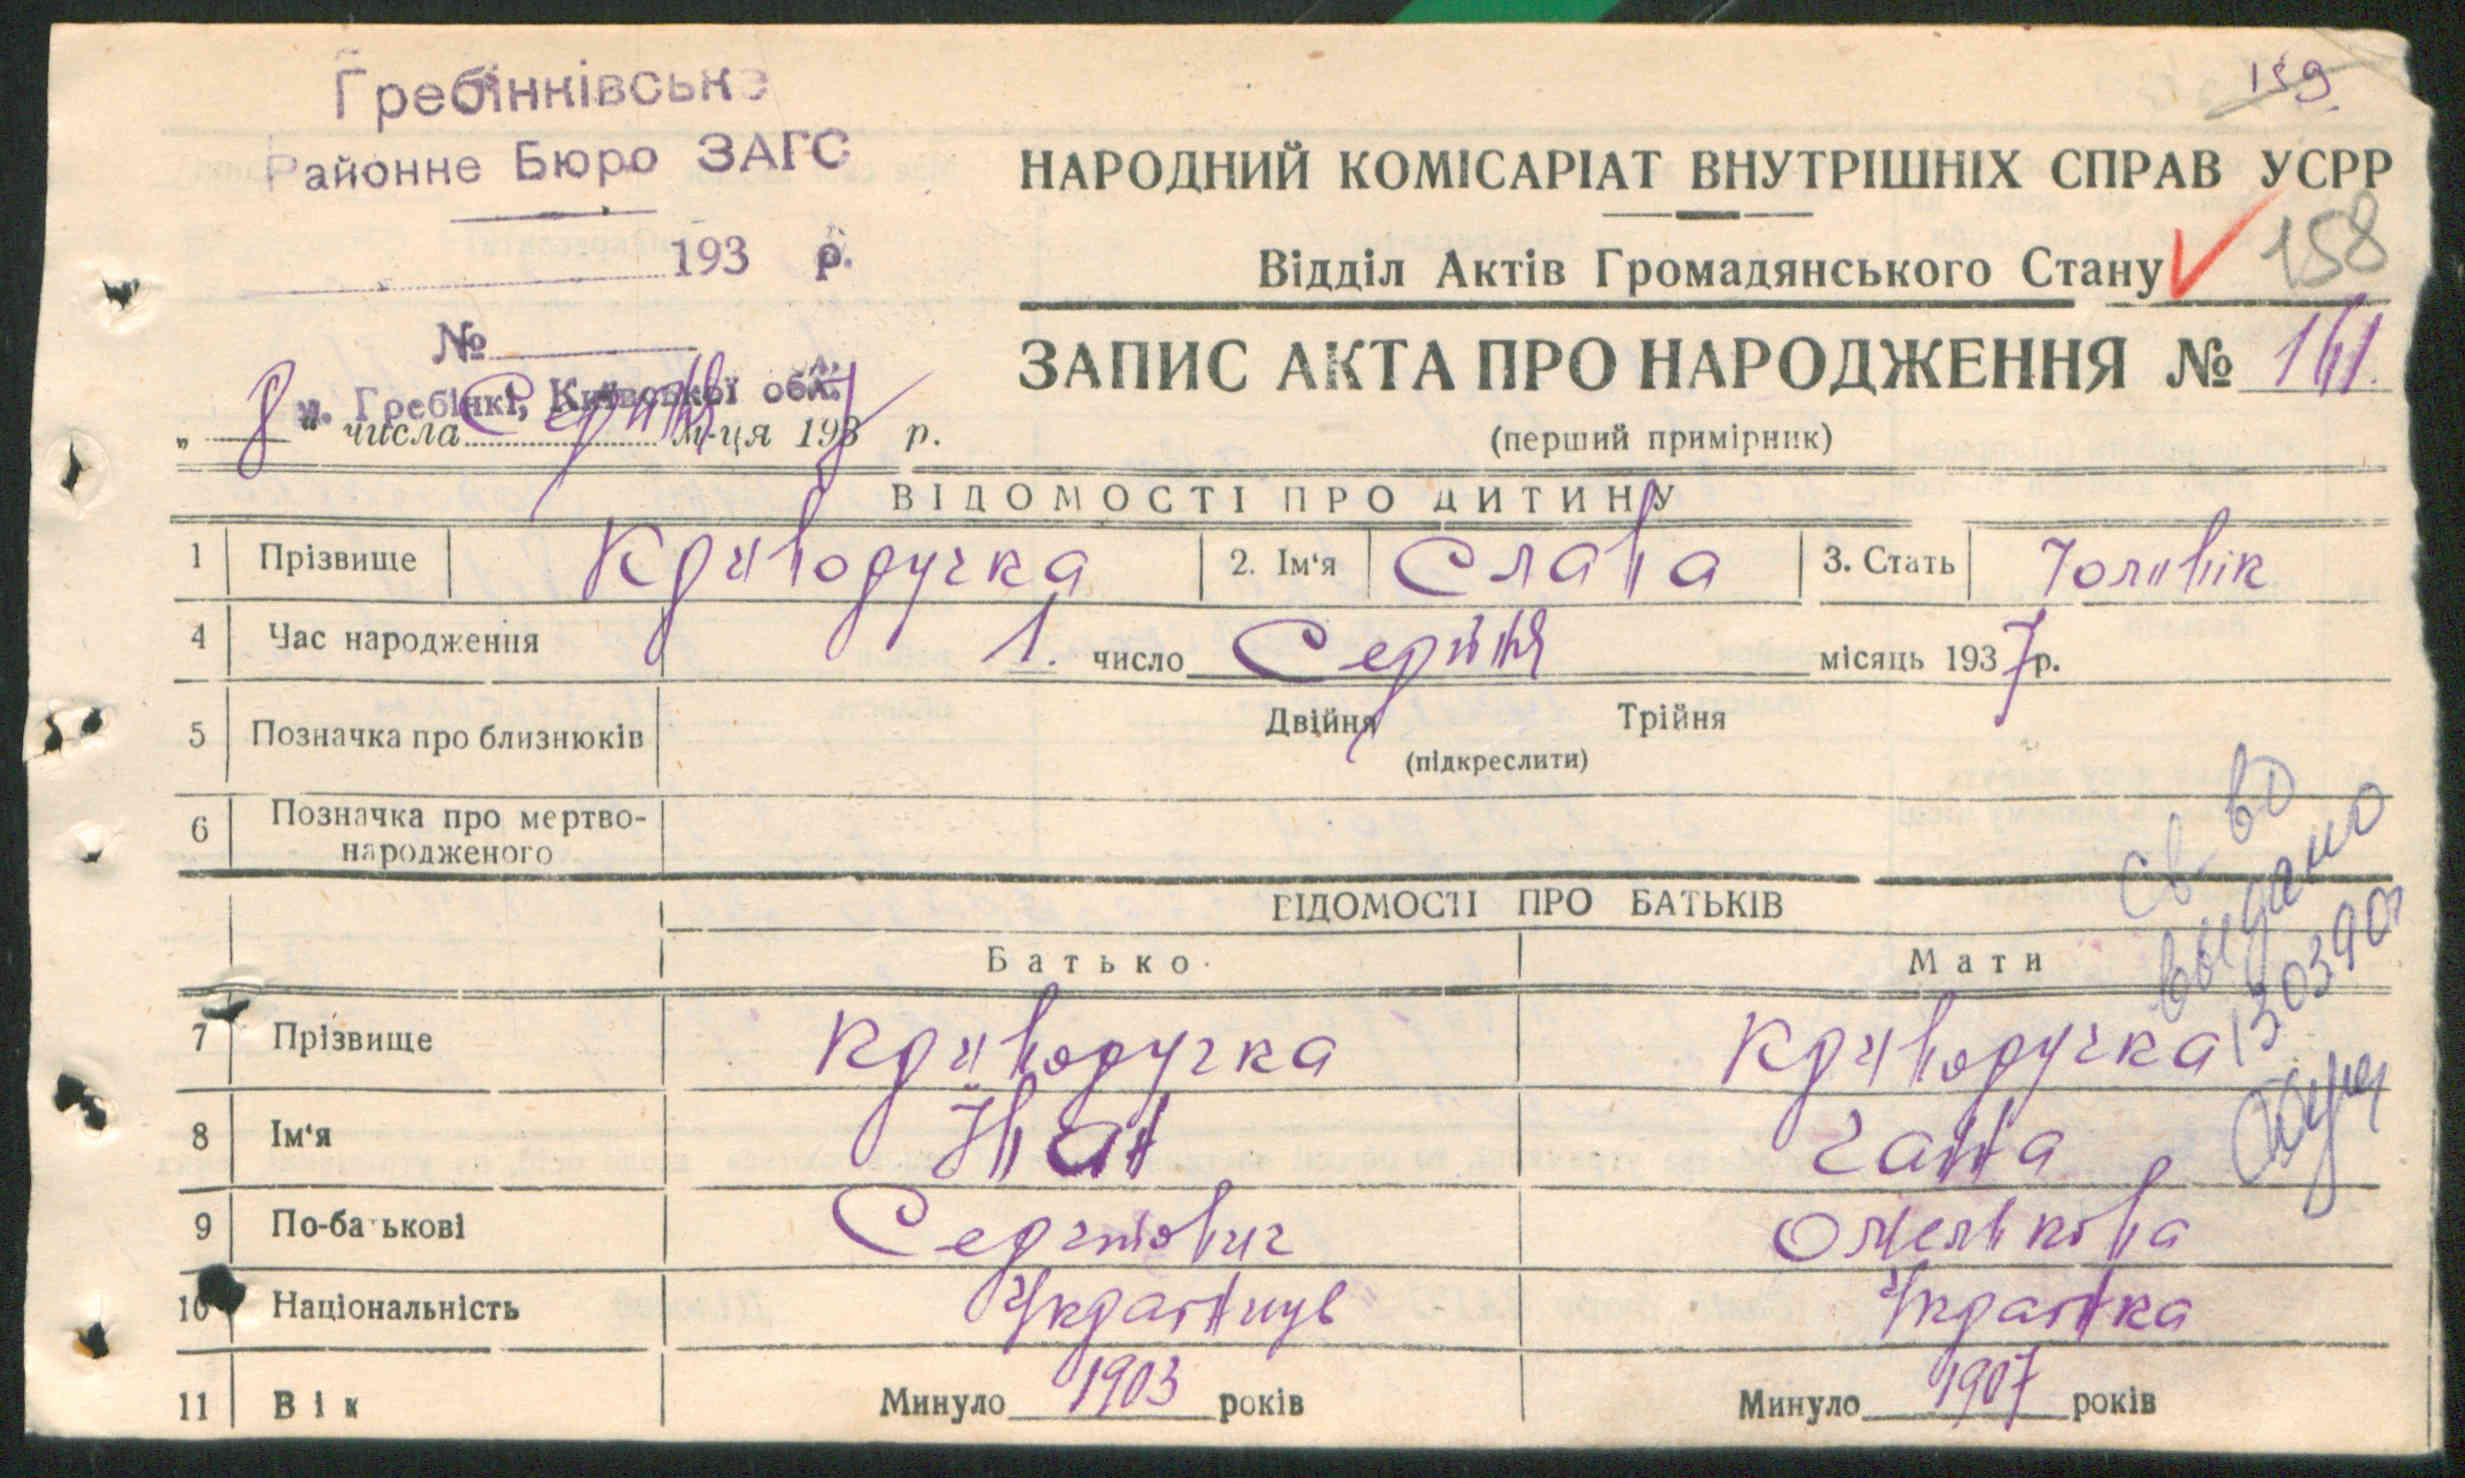 159
Гребінківське
Районне Бюро ЗАГС
193 р.
№
м. Гребінкі, Київської обл.
НАРОДНИЙ КОМІСАРІАТ ВНУТРІШНІХ СПРАВ УСРР
158
Відділ Актів Громадянського Стану
ЗАПИС АКТА ПРО НАРОДЖЕННЯ № 161
(перший примірник)
„ 8 “ числа Серпня м-ця 1937 р.
ВІДОМОСТІ ПРО ДИТИНУ
1 Прізвище Криворучка 2. Ім'я Слава 3. Стать Чоловік
4 Час народження 1. число Серпня місяць 1937 р.
5 Позначка про близнюків Двійня Трійня
(підкреслити)
6 Позначка про мертво-
народженого
ВІДОМОСТІ ПРО БАТЬКІВ
Батько Мати
7 Прізвище Криворучка Криворучка
8 Ім'я Йван Гана
9 По-батькові Сергійович Омелькова
10 Національність Українуць Українка
11 Вік Минуло 1903 років Минуло 1907 років
св-во
выдано